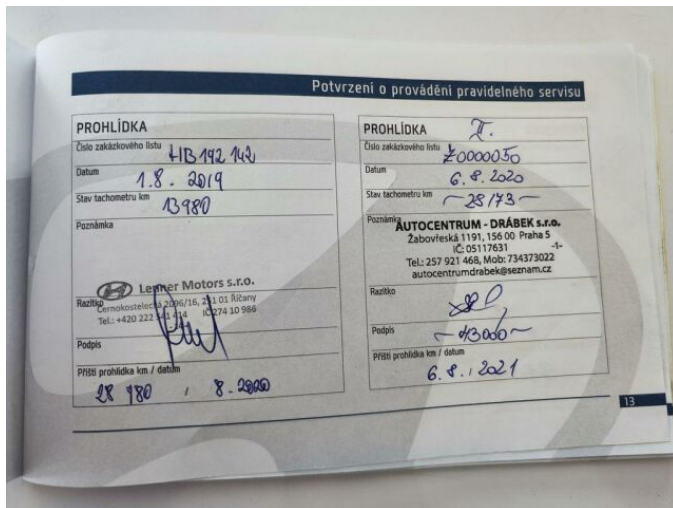 Potvrzení o provádění pravidelného servisu
PROHLÍDKA
Číslo zakázkového listu HB192142
Datum 1.8.2019
Stav tachometru km 13980
Poznámka
Lepner Motors s.r.o.
Razítko Černokostelecká 2096/16, 251 01 Říčany
Tel.: +420 222 541 414 IČ 274 10 986
Podpis
Příští prohlídka km / datum
28 980 / 8.2020
PROHLÍDKA II.
Číslo zakázkového listu Z0000050
Datum 6.8.2020
Stav tachometru km ~28173~
Poznámka
AUTOCENTRUM - DRÁBEK s.r.o.
Žabovřeská 1191, 156 00 Praha 5
IČ: 05117631 -1-
Tel.: 257 921 468, Mob: 734373022
autocentrumdrabek@seznam.cz
Razítko
Podpis ~43000~
Příští prohlídka km / datum
6.8.2021
13